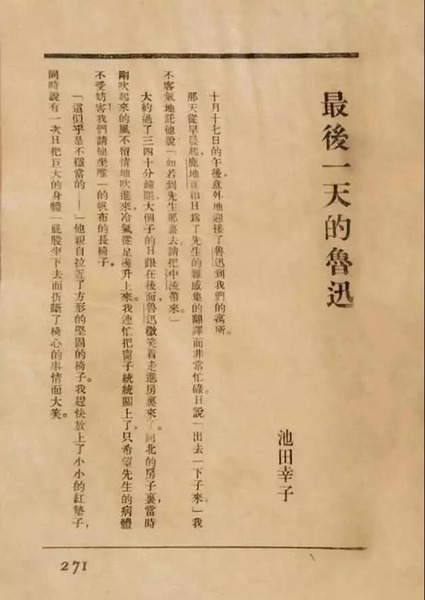 最後一天的魯迅
池田幸子
十月十七日的午後，意外地迎接了魯迅到我們的寓所。
那天從早晨起，鹿地亘和日爲了先生的雜感集的翻譯而非常忙碌。日說「出去一下子來，」我
不客氣地託他說「如若到先生那裏去請把中流帶來。」
大約過了三四十分鐘罷，大個子的日跟在後面，魯迅微笑着走進房裏來了。向北的房子裏當時
剛吹起來的風不留情地吹進來，冷氣從足邊升上來。我連忙把窗子統統關上了，只希望先生的病體
不受妨害。我們請他坐唯一的帆布的長椅子。
「這似乎是不穩當的——」他親自拉近了方形的堅固的椅子。我趕快放上了小小的紅墊子，
同時說有一次日把巨大的身體一屁股坐下去而折斷了椅心的事情而大笑。
271